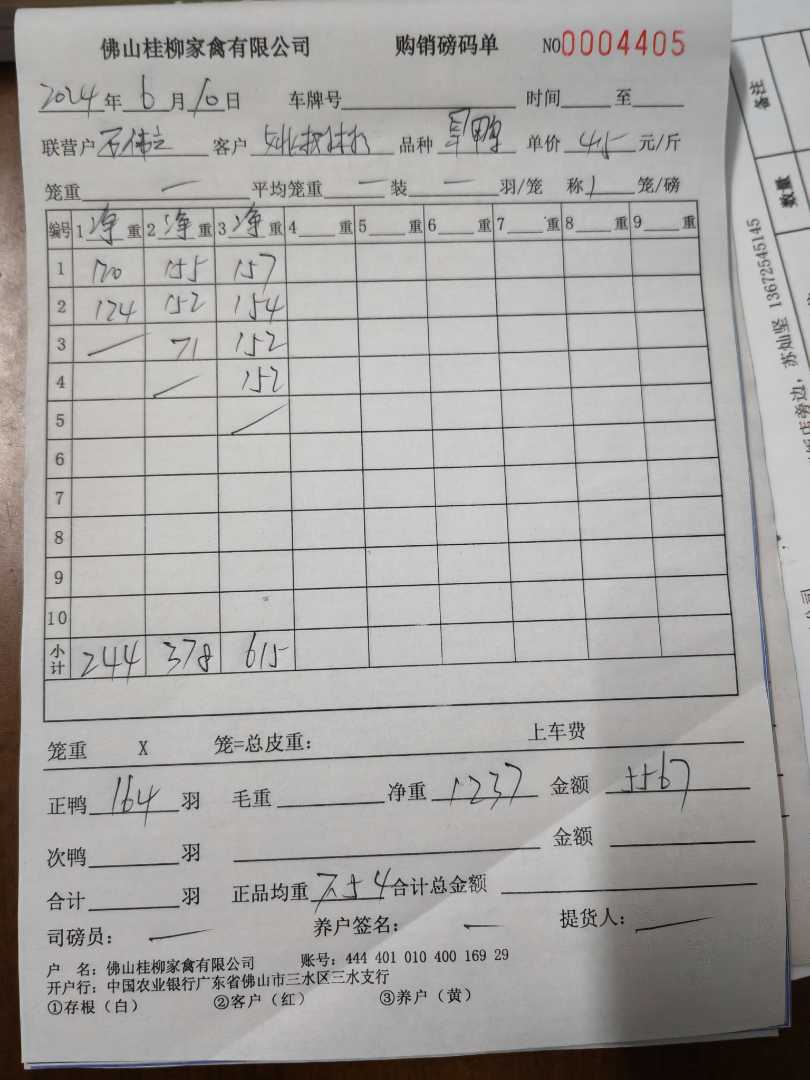 佛山桂柳家禽有限公司 购销磅码单 NO0004405
2024年6月10日 车牌号 时间 至
联营户 客户 品种 旱鸭 单价 4.5 元/斤
笼重 — 平均笼重 — 装 — 羽/笼 称 笼/磅
编号 1净重 2净重 3净重 4 重 5 重 6 重 7 重 8 重 9 重
1 120 155 157
2 124 152 154
3 71 152
4 152
5
6
7
8
9
10
小计 244 378 615
笼重 X 笼=总皮重: 上车费
正鸭 164 羽 毛重 净重 1237 金额 5567
次鸭 羽 金额
合计 羽 正品均重 7.54 合计总金额
司磅员: — 养户签名: — 提货人: —
户 名: 佛山桂柳家禽有限公司 账号: 444 401 010 400 169 29
开户行: 中国农业银行广东省佛山市三水区三水支行
①存根(白) ②客户(红) ③养户(黄)
备注
数量
苏灿坚 13672545145